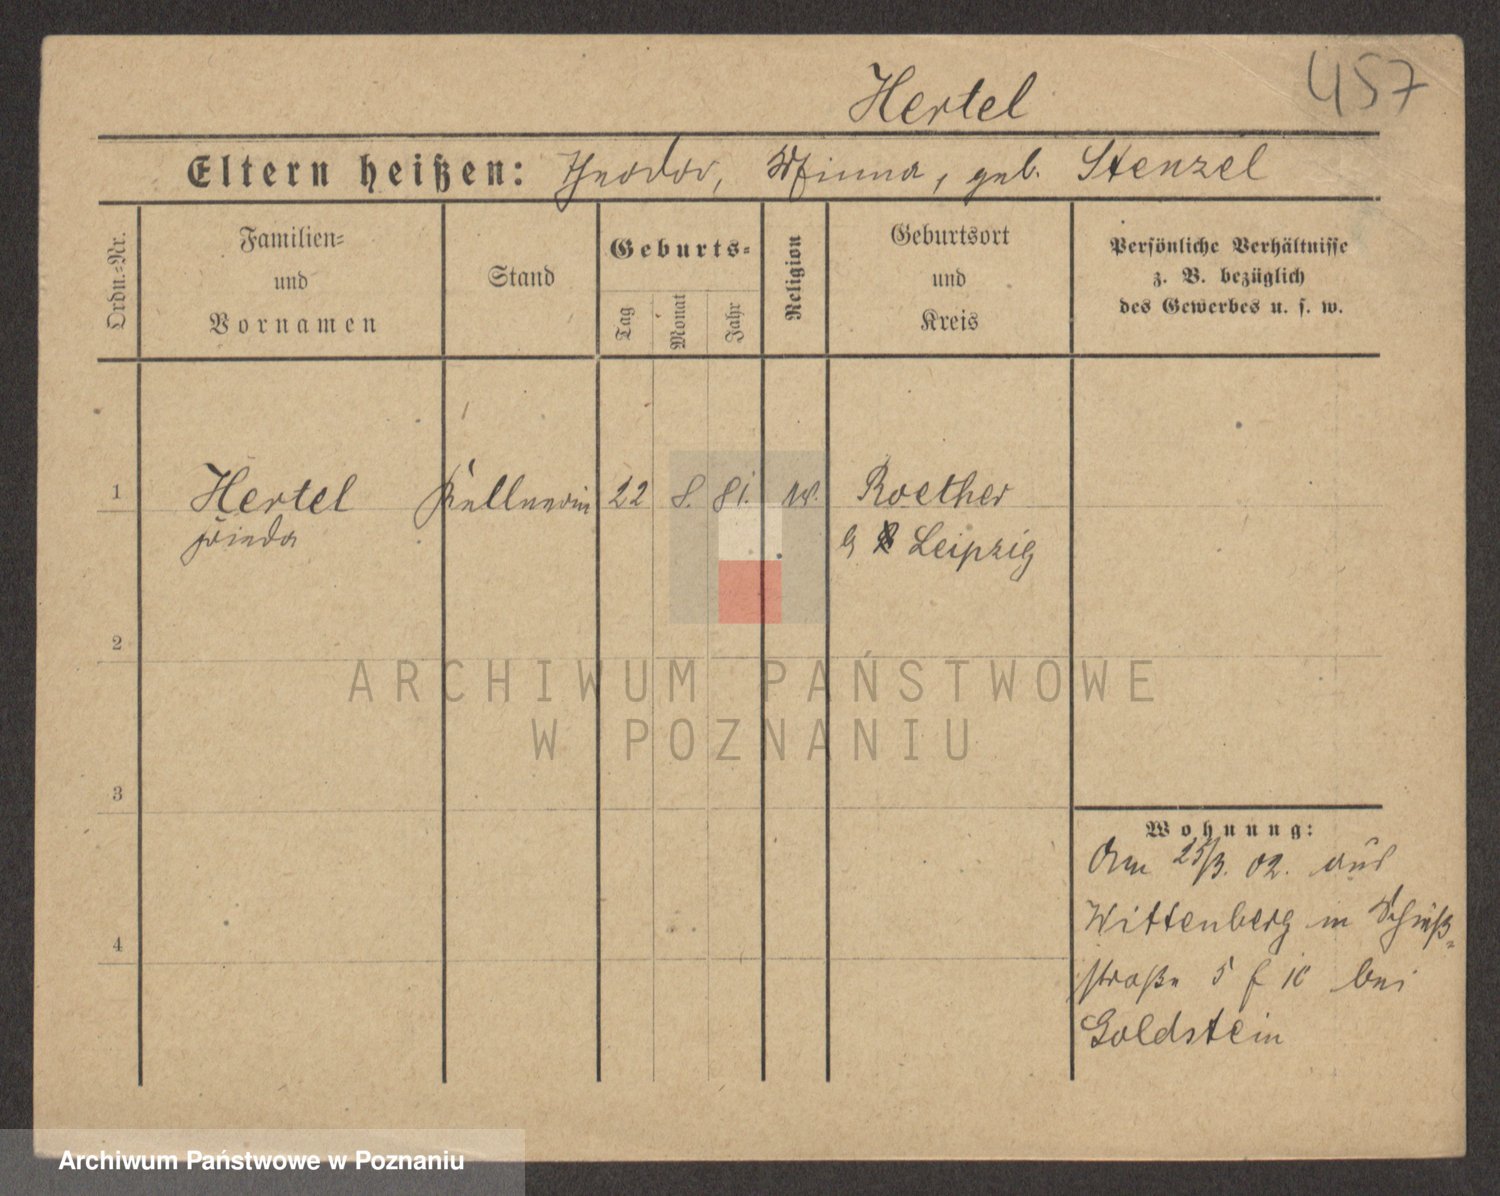 457
Hertel
Eltern heißen: Theodor, Minna, geb. Stenzel
Ordn.-Nr.
Familien-
und
Vornamen
Stand
Geburts-
Tag
Monat
Jahr
Religion
Geburtsort
und
Kreis
Persönliche Verhältnisse
z. B. bezüglich
des Gewerbes u. s. w.
1
Hertel Kellnerin 22 8. 81. Roether
Frieda
Leipzig
2
3
4
Wohnung:
Am 25/3. 02. aus
Wittenberg in Schieß-
straße 5 bei
Goldstein
ARCHIWUM PAŃSTWOWE
W POZNANIU
Archiwum Państwowe w Poznaniu